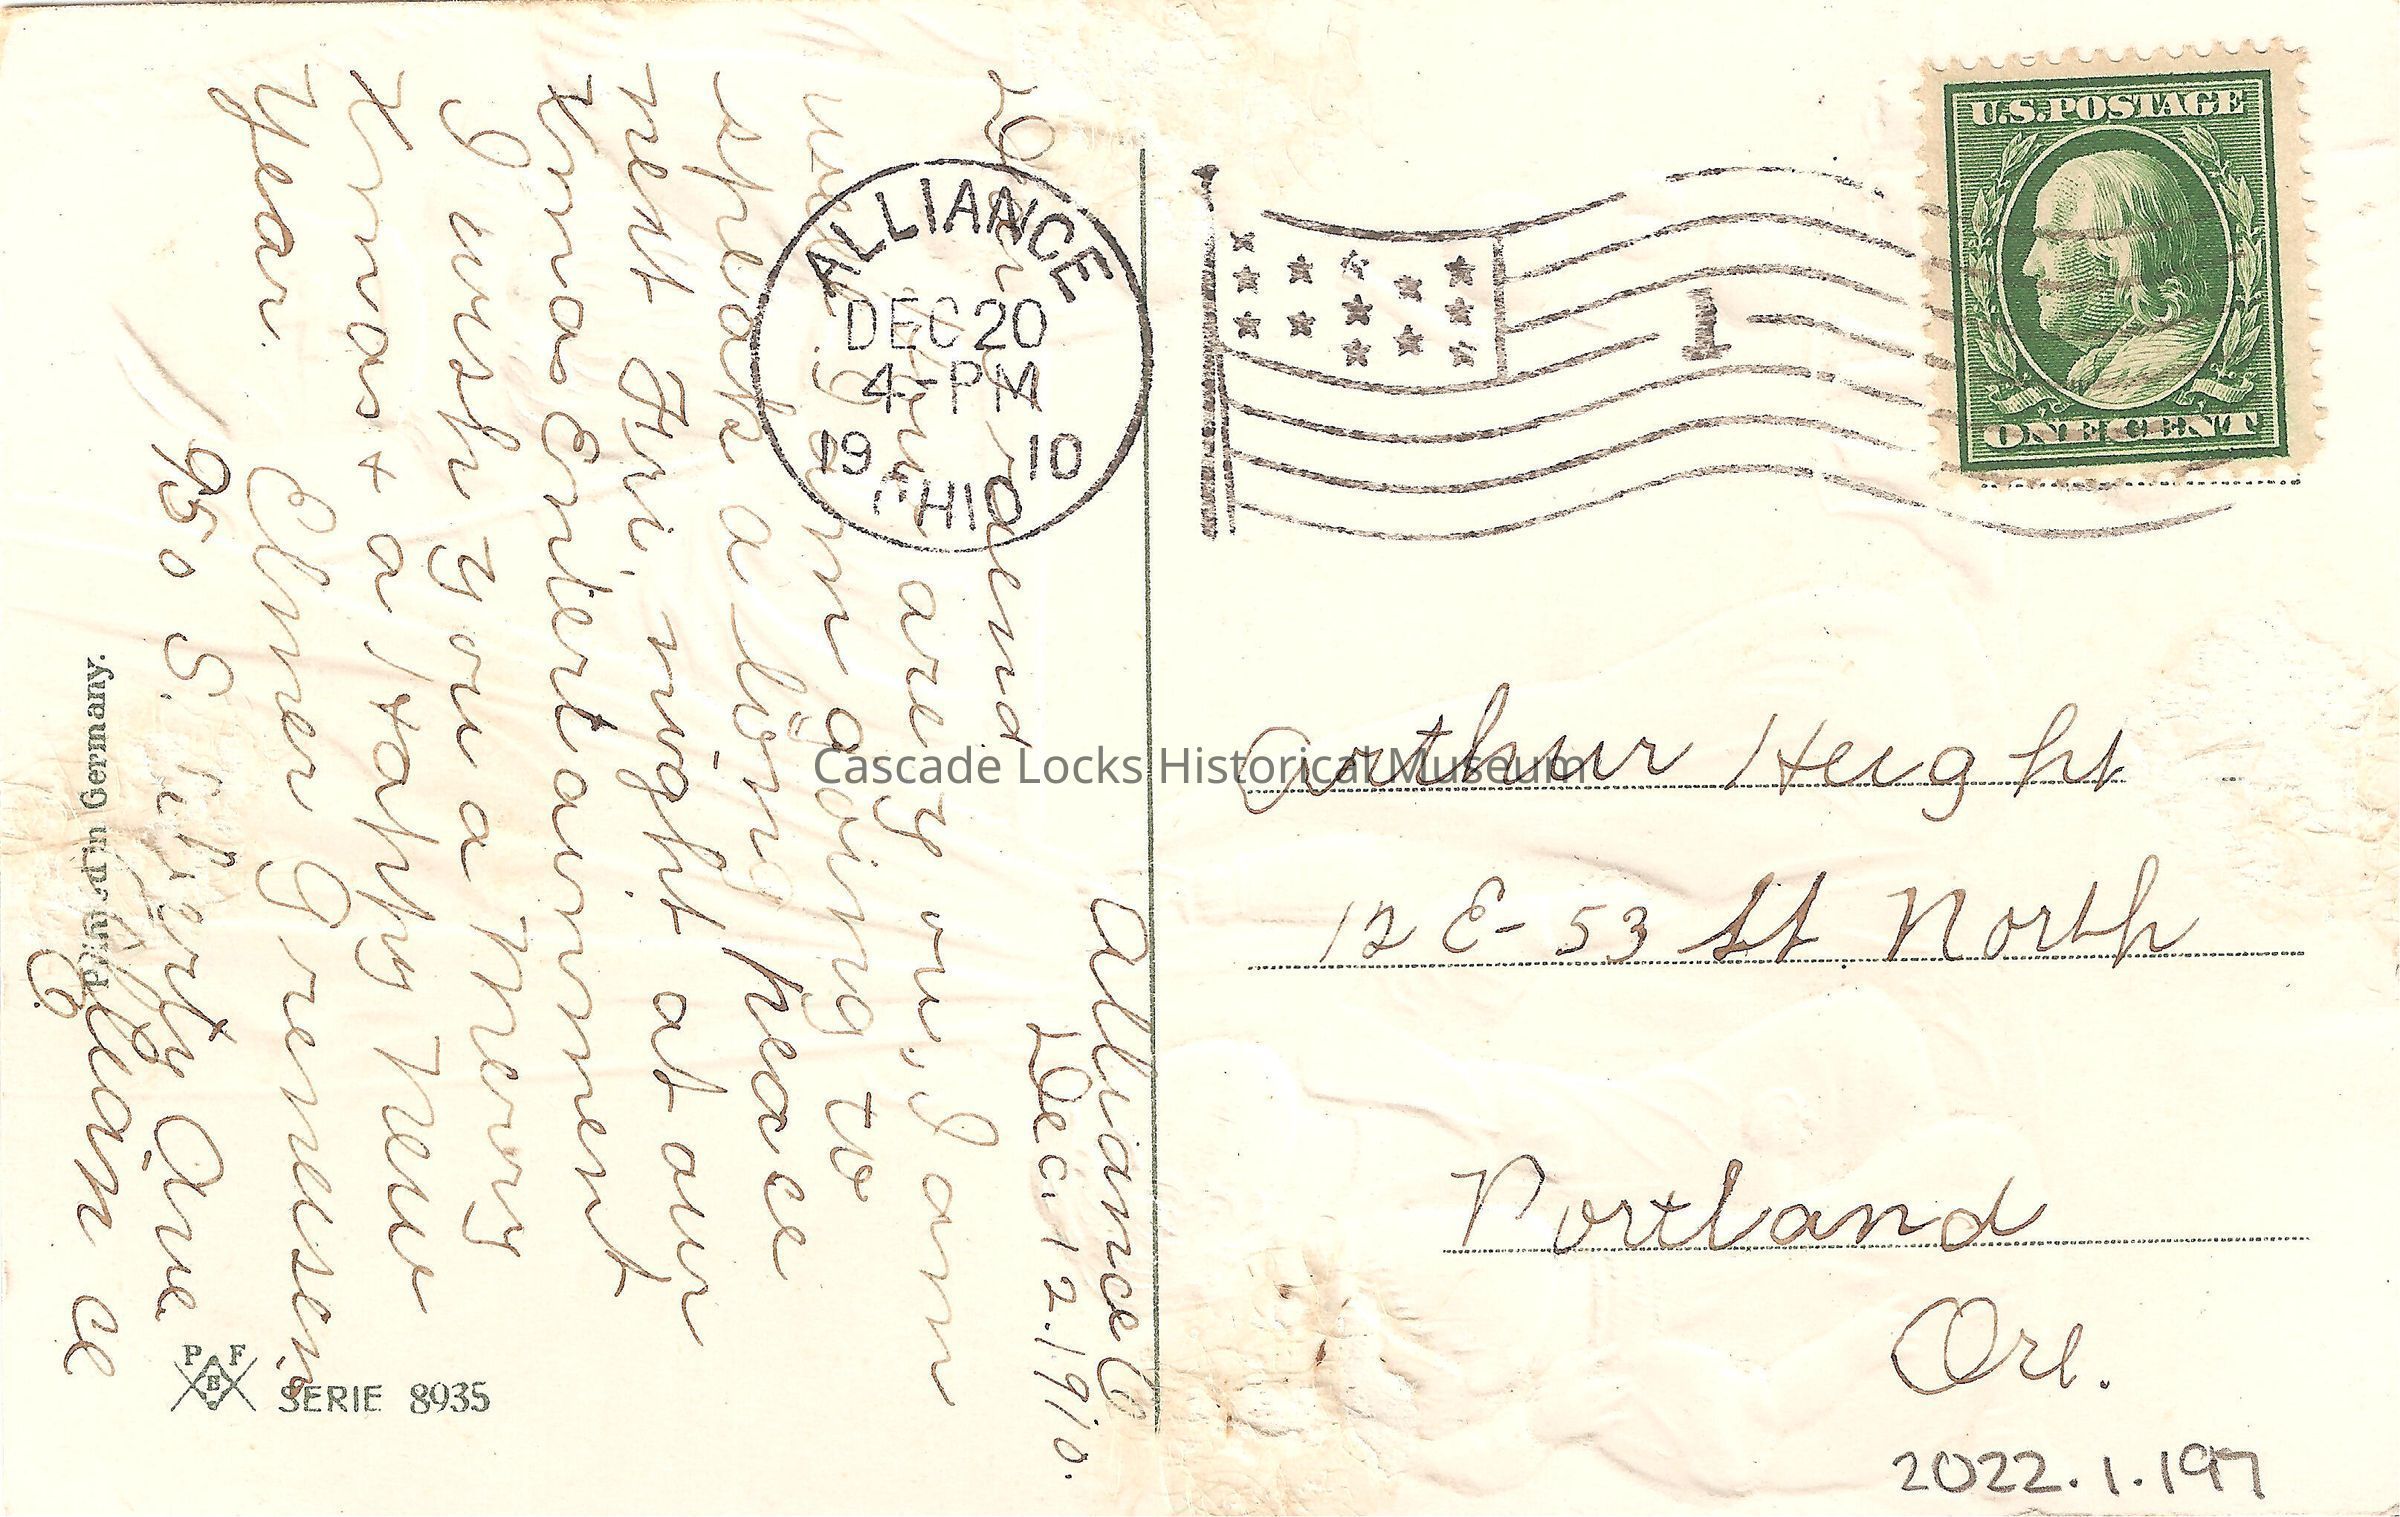 Alliance O
Dec. 12. 1910.
Dear Friend
How are you, I am
well. I am going to
speak a long peace
next Fri, night at our
Xmas Entertainment
I wish you a Merry
Xmas + a Happy New
Year.
Elmer Grenesen
950 S. Liberty Ave
Alliance
O.
Printed in Germany.
P F
B
SERIE 8935
ALLIANCE
DEC 20
4-PM
1910
OHIO
1
U.S. POSTAGE
ONE CENT
Arthur Height
12 E- 53 St North
Portland
Ore.
2022.1.197
Cascade Locks Historical Museum